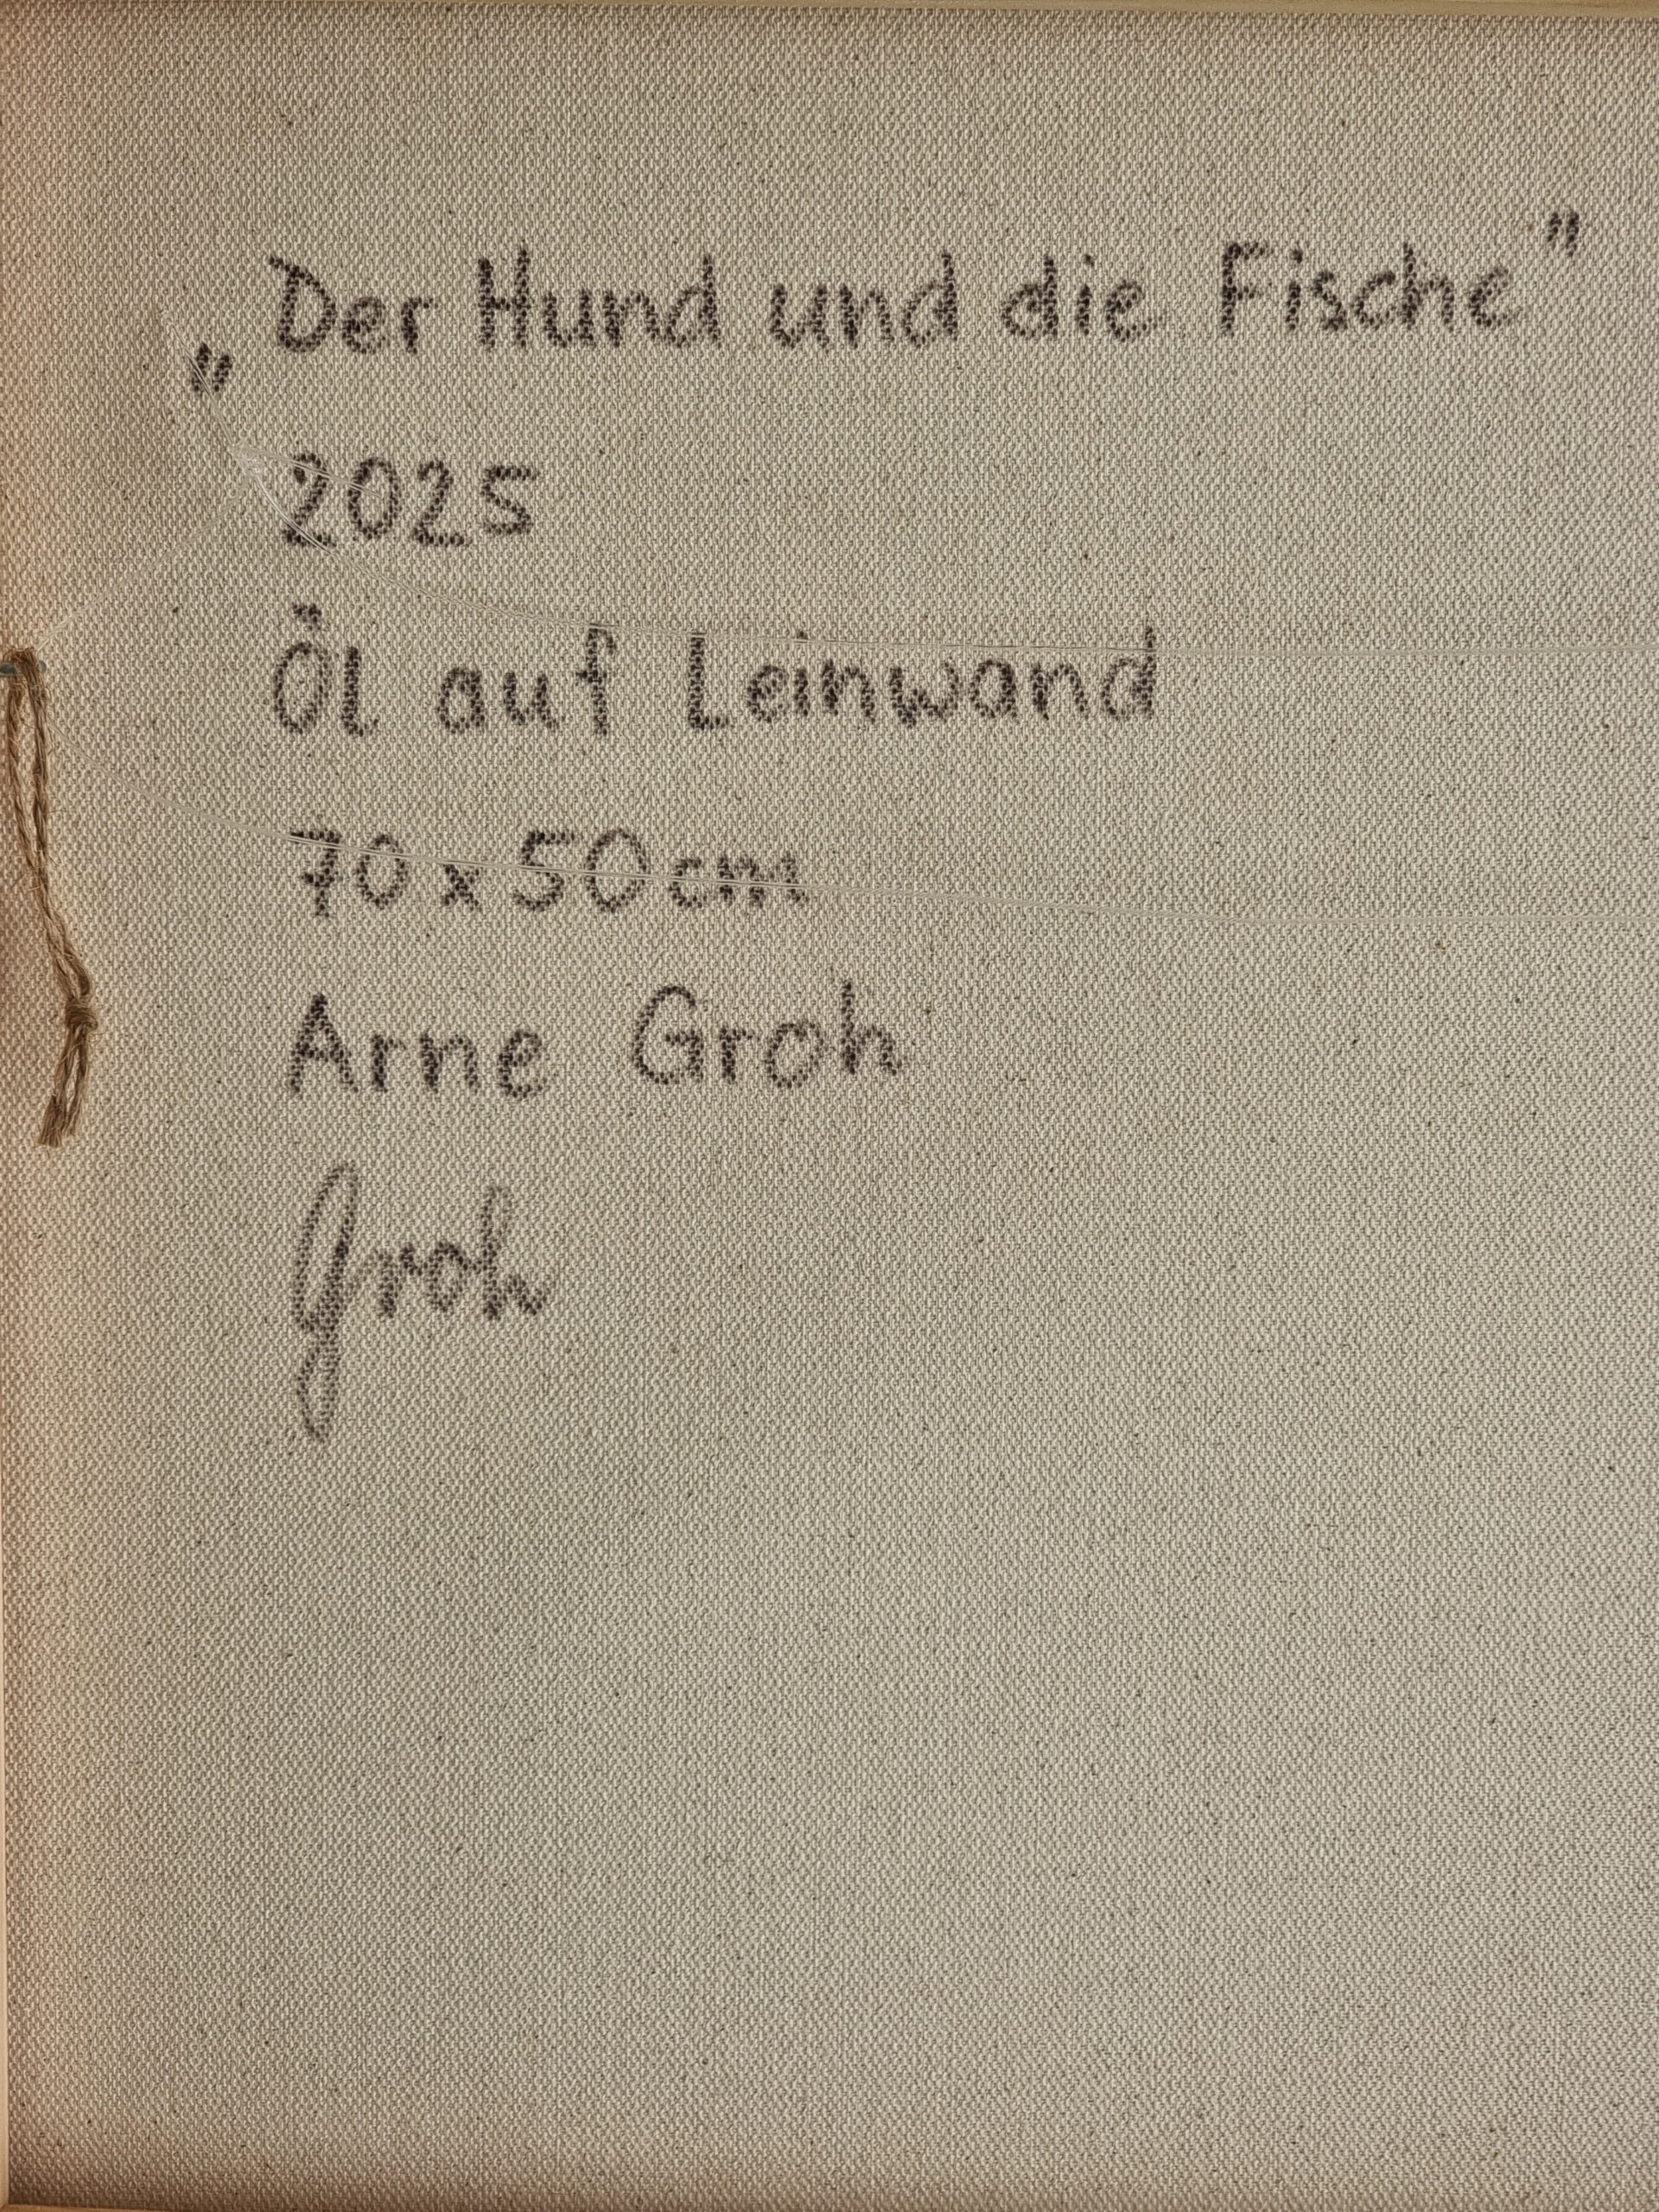 „Der Hund und die Fische"
2025
Öl auf Leinwand
70 x 50 cm
Arne Groh
Groh